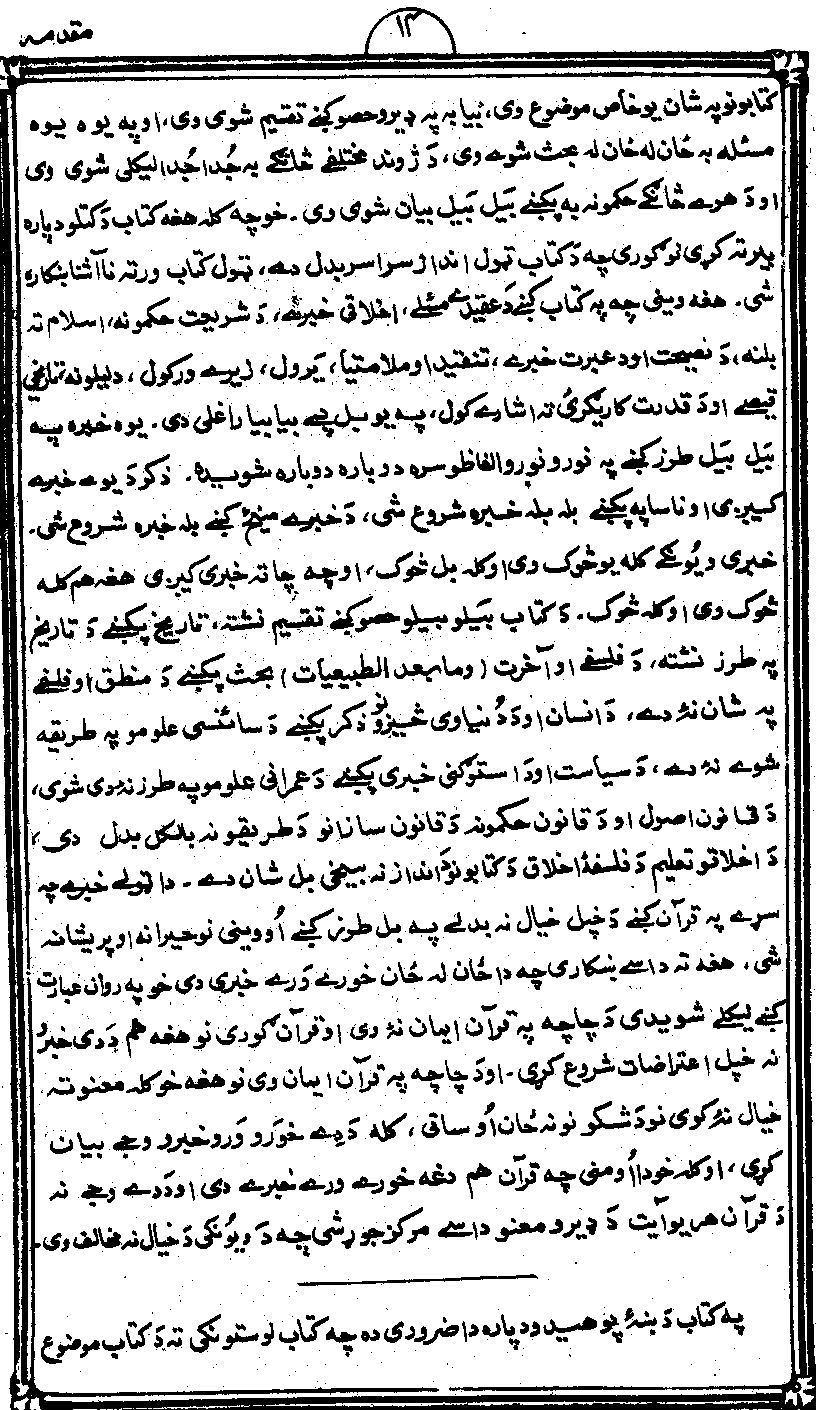 مقدمه
۱۳
کتابونو په شان یو خاص موضوع وی، بیا به په ډیرو حصو کښے تقسیم شوی وی، او په یوه یوه
مسئله به ځان له ځان له بحث شوے وی، دَ ژوند مختلفے څانګے به جُدا جُدا لیکلی شوی وی
او دَ هرے څانګے حکمونه به پکښے بَیل بَیل بیان شوی وی. خو چه کله هغه کتاب دَ کتلو دپاره
بیرته کړی نو ګوری چه دَ کتاب ټول انداز سراسر بدل دے، ټول کتاب ورته ناآشنا ښکاره
شی. هغه وینی چه په کتاب کښے دَ عقیدے مسئلے، اخلاقی خبرے، دَ شریعت حکمونه، اسلام ته
بلنه، دَ نصیحت او دَ عبرت خبرے، تنقید او ملامتیا، یَرول، زیرے ورکول، دلیلونه، تاریخی
قیصے او دَ قدرت کاریګرئ ته اشارے کول، په یو بل پسے بیا بیا راغلی دی. یوه خبره په
بَیل بَیل طرز کښے په نورو نورو الفاظو سره دوباره دوباره شویده. ذکر دَ یوے خبرے
کیږی او ناساپه پکښے بله بله خبره شروع شی، دَ خبرے مینځ کښے بله خبره شروع شی.
خبری ویُونکے کله یو څوک وی او کله بل څوک، او چه چا ته خبری کیږی هغه هم کله
څوک وی او کله څوک. دَ کتاب بَیلو بَیلو حصو کښے تقسیم نشته، تاریخ پکښے دَ تاریخ
په طرز نشته، دَ فلسفے او آخرت (وما بعد الطبیعیات) بحث پکښے دَ منطق او فلسفے
په شان نۀ دے، دَ انسان او دَ دُنیاوی څیزونو ذکر پکښے دَ سائنسی علومو په طریقه
شوے نۀ دے، دَ سیاست او دَ استوګنی خبری پکښے دَ عمرانی علومو په طرز نۀ دی شوی،
دَ قانون اصول او دَ قانون حکمونه دَ قانون سازانو دَ طریقو نه بالکل بدل دی،
دَ اخلاقو تعلیم دَ فلسفۀ اخلاق دَ کتابونو دَ انداز نه بیخی بل شان دے. دا ټولے خبرے چه
سړے په قرآن کښے دَ خپل خیال نه بدلے په بل طرز کښے اُووینی نو حیرانه او پریشانه
شی. هغه ته داسے ښکاری چه دا ځان له ځان خورے وَرے خبری دی خو په روان عبارت
کښے لیکلے شویدی دَ چا چه په قرآن ایمان نۀ وی او قرآن ګوری نو هغه هم دَ دی خبرُ
نه خپل اعتراضات شروع کړی. او دَ چا چه په قرآن ایمان وی نو هغه خو کله معنو ته
خیال نۀ کوی نو دَ شکونو نه ځان اُو ساتی، کله دَ دے خوَرو وَرو خبرو وجے بیان
کړی، او کله خود اُومنی چه قرآن هم دغه خورے ورے خبرے دی او دَ دے وجے نه
دَ قرآن هر یو آیت دَ ډیرو معنو داسے مرکز جوړ شی چه دَ ویُونکی دَ خیال نه مخالف وی.
په کتاب دَ ښۀ پوهیدو دپاره دا ضروری ده چه کتاب لوستونکی ته دَ کتاب موضوع